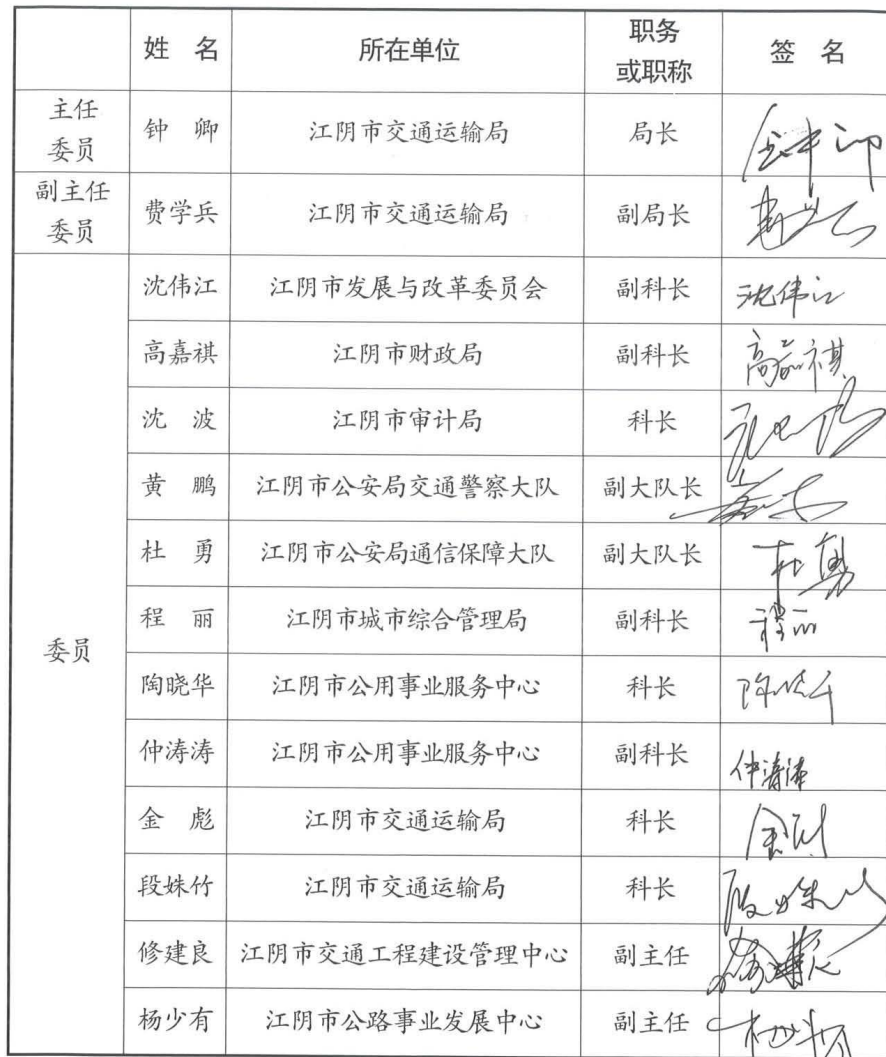 姓 名 所在单位 职务 或职称 签 名
主任 委员 钟 卿 江阴市交通运输局 局长
副主任 委员 费学兵 江阴市交通运输局 副局长
委员
沈伟江 江阴市发展与改革委员会 副科长 沈伟江
高嘉祺 江阴市财政局 副科长 高嘉祺
沈 波 江阴市审计局 科长
黄 鹏 江阴市公安局交通警察大队 副大队长
杜 勇 江阴市公安局通信保障大队 副大队长 杜勇
程 丽 江阴市城市综合管理局 副科长 程丽
陶晓华 江阴市公用事业服务中心 科长
仲涛涛 江阴市公用事业服务中心 副科长 仲涛涛
金 彪 江阴市交通运输局 科长
段姝竹 江阴市交通运输局 科长
修建良 江阴市交通工程建设管理中心 副主任
杨少有 江阴市公路事业发展中心 副主任